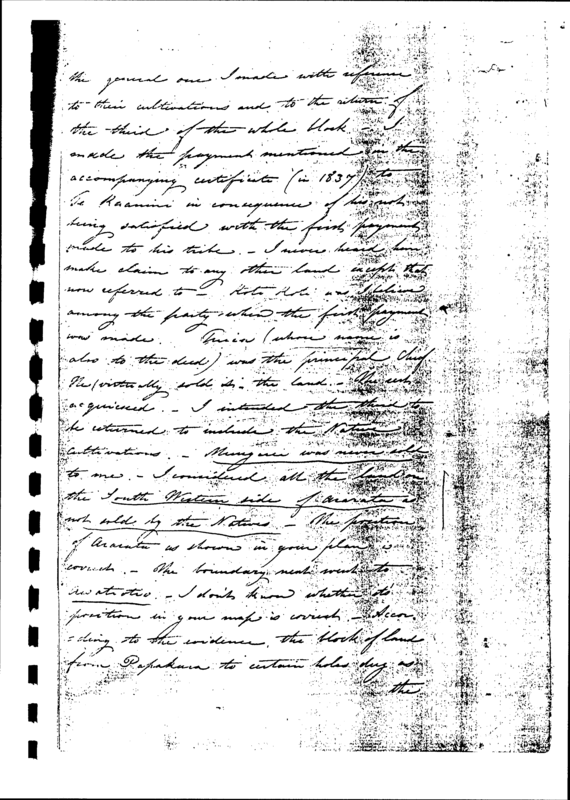 the general one I made with reference
to their cultivations and to the return of
the third of the whole block. – I
made the payment mentioned in the
accompanying certificate (in 1837) to
Te Kaamini in consequence of his not
being satisfied with the first payment
made to his tribe. – I never heard him
make claim to any other land except that
now referred to – Koti Koti was I believe
among the party when the first payment
was made. (whose name is
also to the deed) was the principal chief
He (virtually sold the land. – The rest
acquiesced. – I intended the third to
be returned to include the Native
cultivations. – was never sold
to me. – I considered all the land on
the South Western side of Ararata as
not sold by the Natives. – The position
of Ararata as shown in your plan is
correct. – The boundary next went to
. – I don't know whether its
position in your map is correct. – Accor
=ding to the evidence, the block of land
from Papakura to certain holes dug as
the